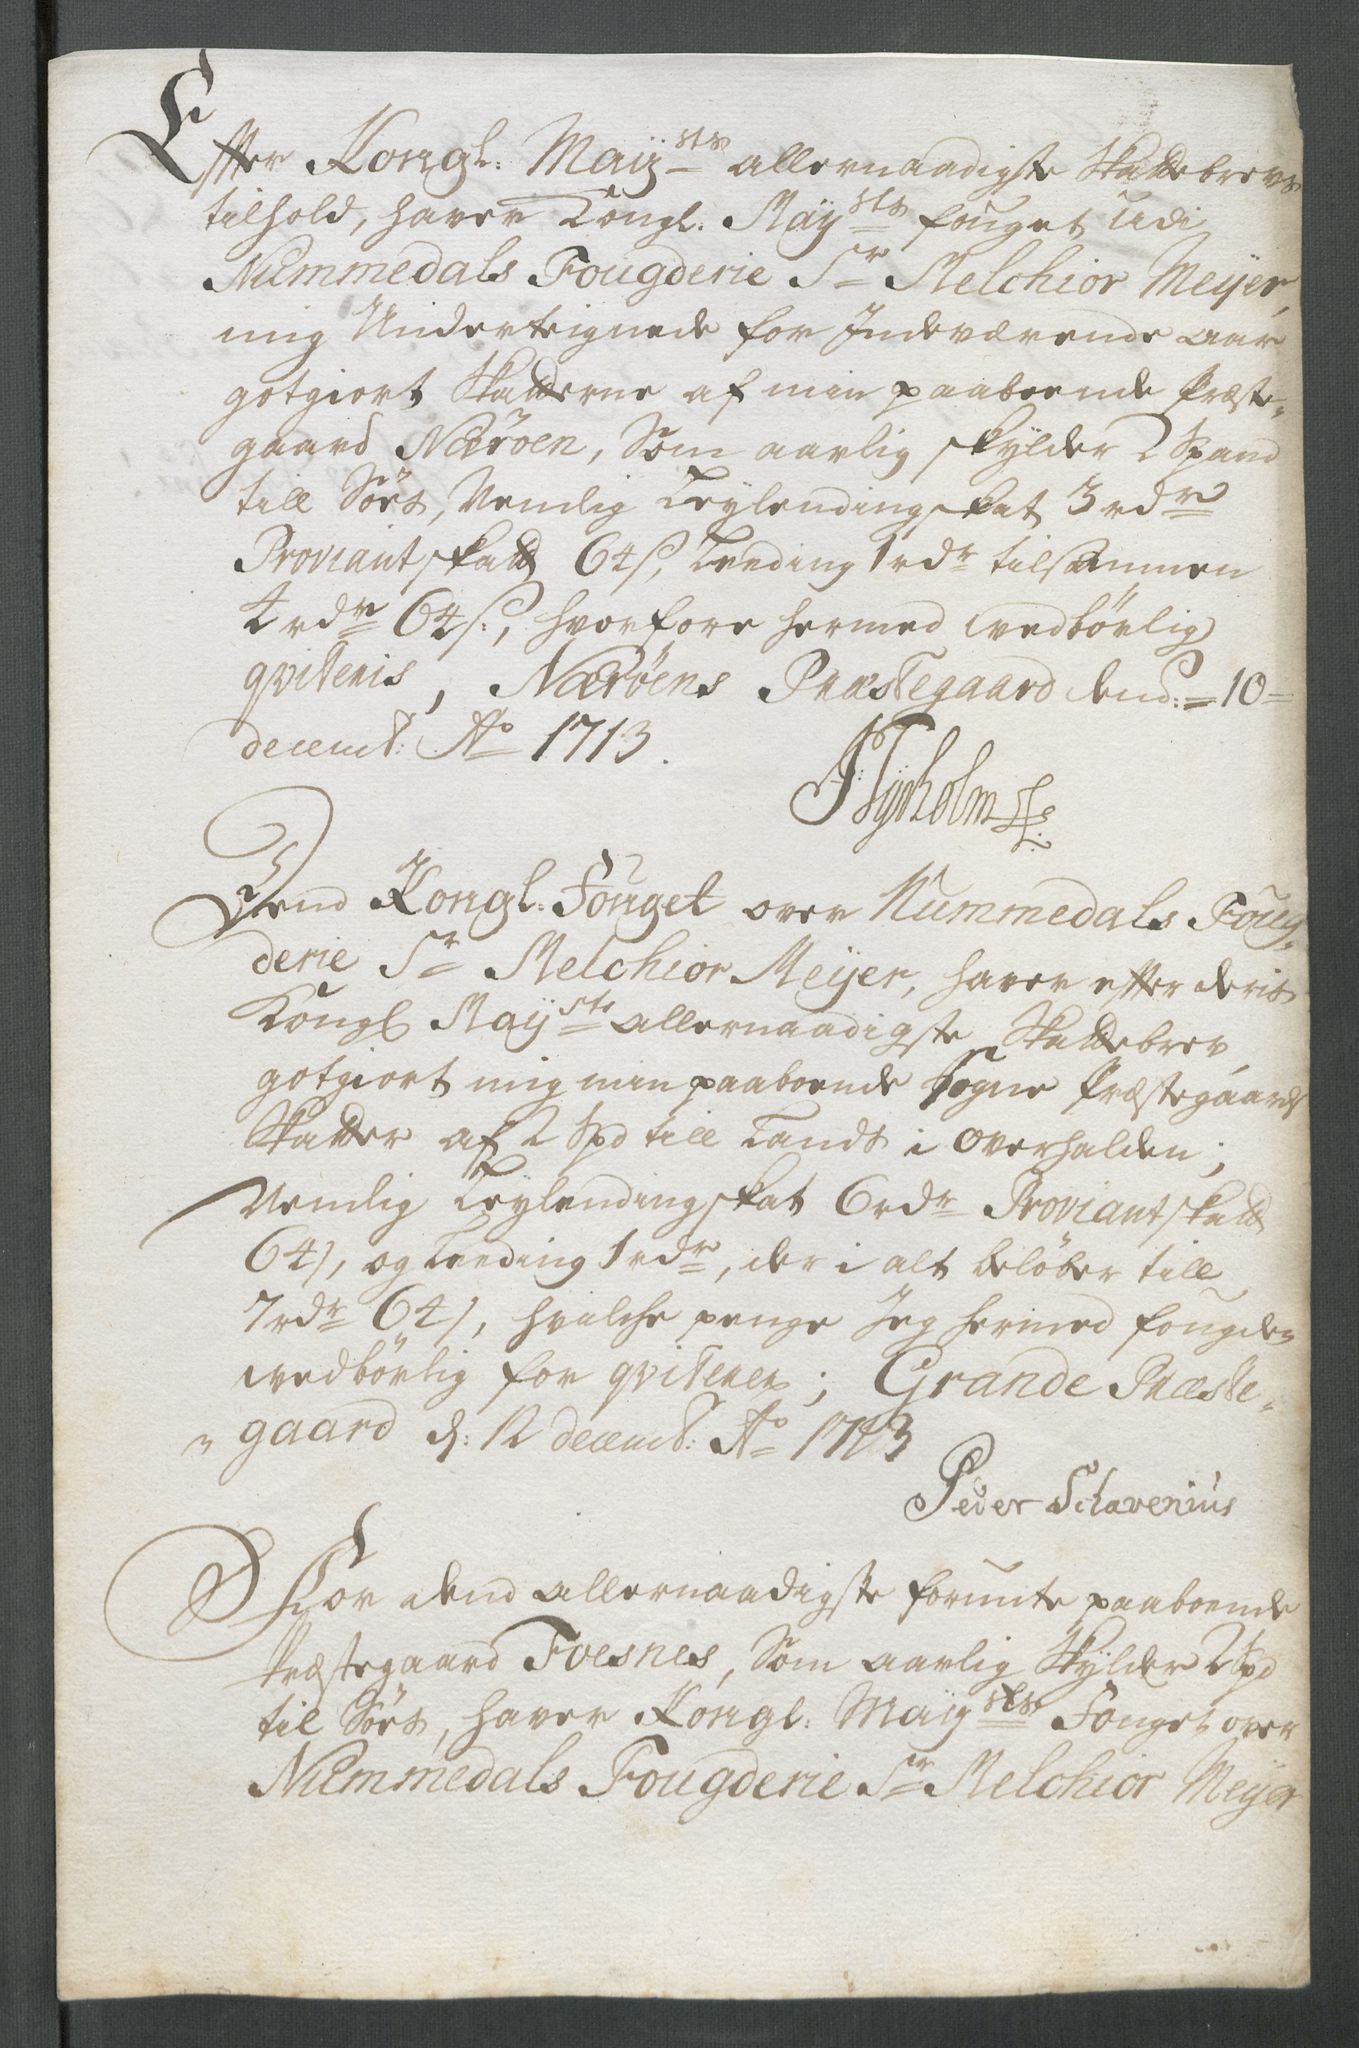 Efter Kongl: Maÿsts allernaadigste Skattebrevs
tilhold, haver Kongl: Maÿsts fouget udi
Nummedals Fougderie Sr Melchior Meÿer,
mig Underteignede for Indeværende aar
gotgiort Skatterne af min paaboende Præste-
gaard Nærøen, Som aarlig skylder 2 Spand
till Søes, Nemlig Leylendingskat 3 rdr
Proviantskatt 64 s, Leeding 1 rdr tilsammen
4 rdr 64 s:, hvorfore hermed vedbörlig
qviteris, Nærøens Præstegaard dend: 10
decemb: Ao 1713.
Dend Kongl: Fouget over Nummedals Foug-
derie Sr Melchior Meÿer, haver efter deris
Kongl Maÿsts allernaadigste Skattebrev
gotgiort mig min paaboende Sogne Præstegaards
Skatter af 2 Spd till Lands i Overhalden;
Nemlig Leylendingskat 6 rdr Proviantskatt
64 s, og Leeding 1 rdr, der i alt beløber till
7 rdr 64 s, hvilche penge Jeg hermed fougden
vedbörlig for qviterer; Grande Præste-
gaard d: 12 decemb: Ao 1713
Peder Schavenius
For dend allernaadigste forunte paaboende
Præstegaard Foesnes, Som aarlig Skylder 2 Spd
til Søes, haver Kongl: Maÿsts Fouget over
Nummedals Fougderie Sr Melchior Meÿer